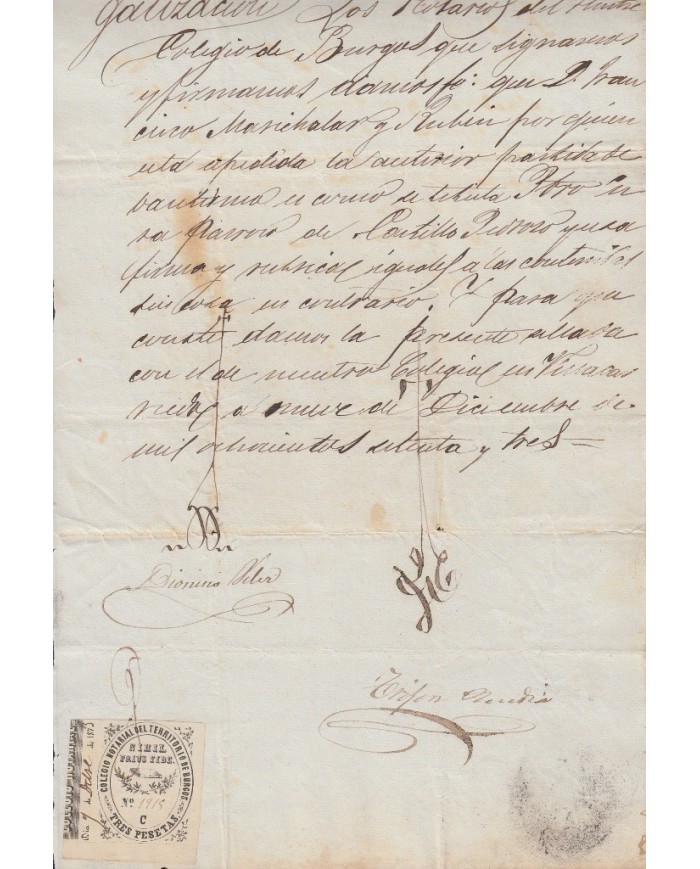 galización Los Notarios del Ilustre
Colegio de Burgos que signamos
y firmamos damos fe: que D. Fran
cisco Marichalar y Rubin por quien
esta espedida la anterior partida de
bautismo es como se titula Pbro
Parroco de Castillo Pedroso y su
firma y rubrica iguales a las
cosa en contrario. Y para que
conste damos la presente sellada
con el de nuestro Colegio en Villacar
riedo a nueve de Diciembre de
mil ochocientos setenta y tres
Dionisio
Trifon
COLEGIO NOTARIAL DEL TERRITORIO DE BURGOS
NIHIL
PRIUS FIDE
Nº 1915
C
TRES PESETAS.
Dia 9 de Dbre de 1873